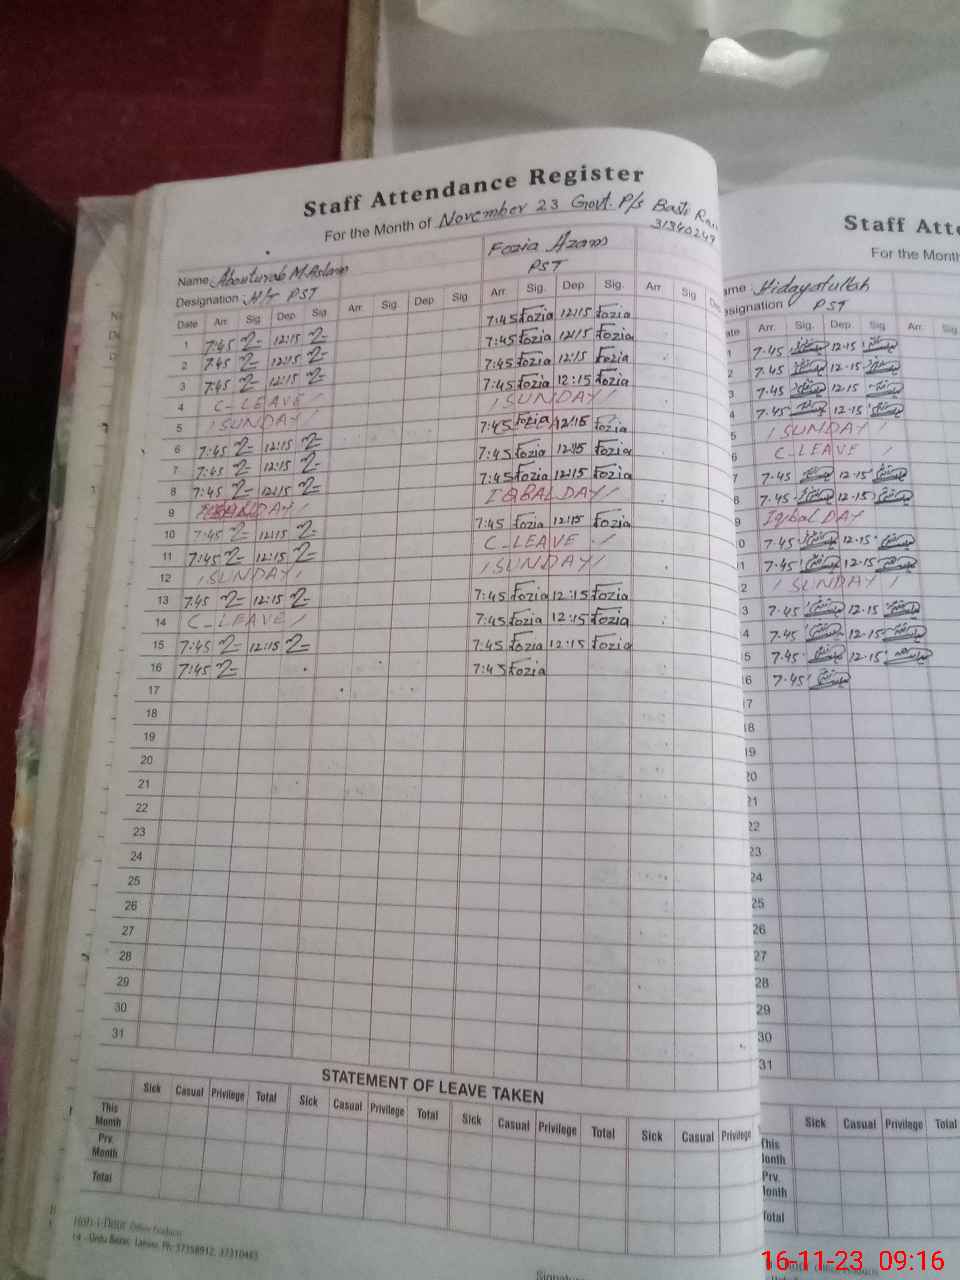 Staff Attendance Register
For the Month of November 23 Govt. P/s Basti Ran
31340249
Name Abouturab M.Aslam Fozia Azam
Designation H/T PST PST
Date Arr. Sig. Dep Sig. Arr. Sig. Dep Sig Arr. Sig. Dep Sig. Arr Sig
1 7:45 12:15 7:45 Fozia 12:15 Fozia
2 7:45 12:15 7:45 Fozia 12:15 Fozia
3 7:45 12:15 7:45 Fozia 12:15 Fozia
4 C-LEAVE / 7:45 Fozia 12:15 Fozia
5 / SUNDAY / / SUNDAY /
6 7:45 12:15 7:45 Fozia 12:15 Fozia
7 7:45 12:15 7:45 Fozia 12:15 Fozia
8 7:45 12:15 7:45 Fozia 12:15 Fozia
9 DAY / IQBAL DAY /
10 7:45 12:15 7:45 Fozia 12:15 Fozia
11 7:45 12:15 C-LEAVE /
12 / SUNDAY / / SUNDAY /
13 7:45 12:15 7:45 Fozia 12:15 Fozia
14 C-LEAVE / 7:45 Fozia 12:15 Fozia
15 7:45 12:15 7:45 Fozia 12:15 Fozia
16 7:45 7:45 Fozia
17
18
19
20
21
22
23
24
25
26
27
28
29
30
31
STATEMENT OF LEAVE TAKEN
Sick Casual Privilege Total Sick Casual Privilege Total Sick Casual Privilege Total Sick Casual Privilege
This Month
Prv. Month
Total
14 - Urdu Bazar, Lahore, Ph: 37358912, 37310463
Staff Atte
For the Month
ame Hidayatullah
esignation PST
ate Arr. Sig. Dep Sig Arr. Sig.
1 7.45 12.15
2 7.45 12.15
3 7.45 12.15
4 7.45 12.15
5 / SUNDAY /
6 C-LEAVE /
7 7.45 12.15
8 7.45 12.15
9 Iqbal DAY
0 7.45 12.15
1 7.45 12.15
2 / SUNDAY /
3 7.45 12.15
4 7.45 12.15
5 7.45 12.15
6 7.45
17
18
19
20
21
22
23
24
25
26
27
28
29
30
31
Sick Casual Privilege Total
This Month
Prv. Month
Total
16-11-23 09:16